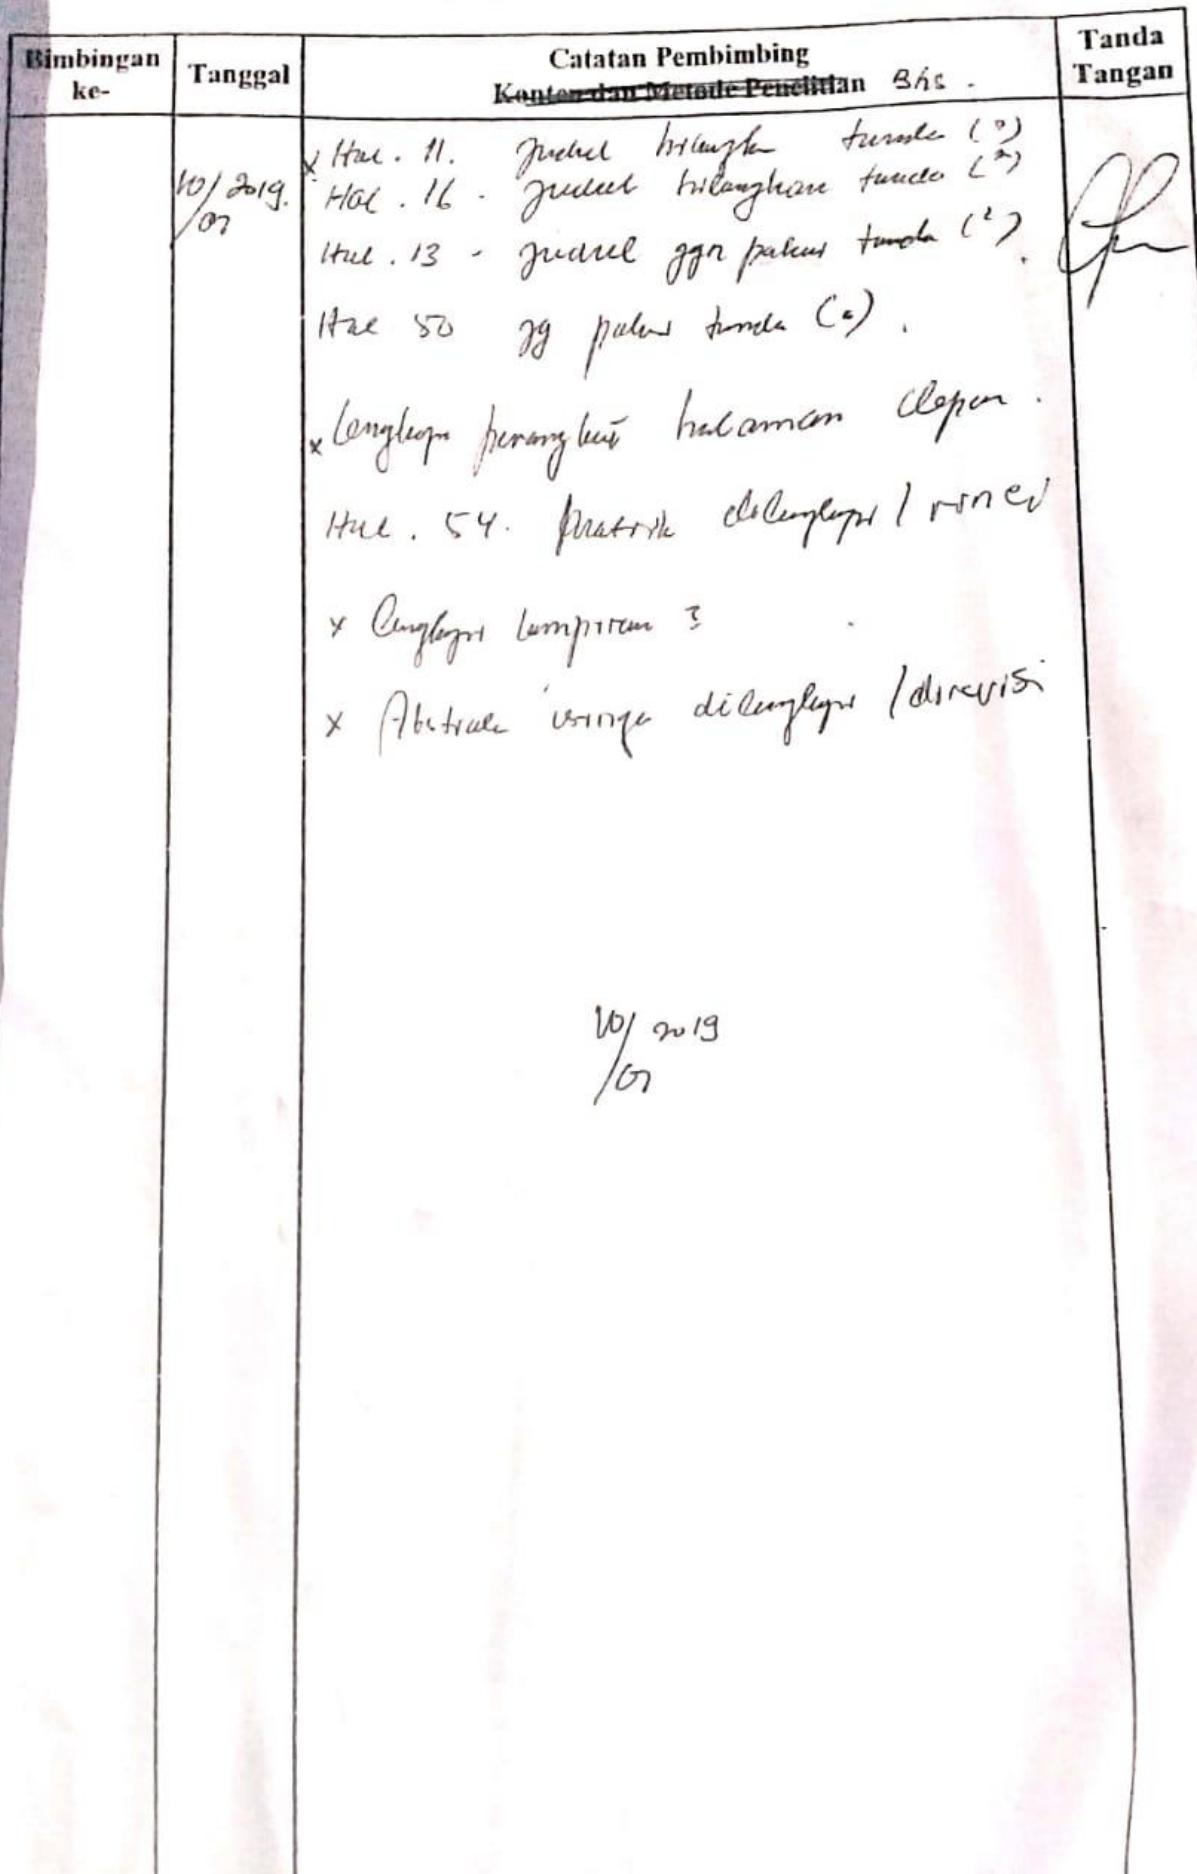 Bimbingan ke-
Tanggal
Catatan Pembimbing
Konten dan Metode Penelitian Bhs.
Tanda Tangan
10/2019.
/07
x Hal. 11. judul hilangka tanda (?)
Hal. 16. judul hilangkan tanda (?)
Hal. 13 - judul jgn pakai tanda (?).
Hal 50 jg pakai tanda (.).
x lengkapi perangkat halaman depan.
Hal. 54. dilengkapi / rinci
x lengkapi lampiran
x Abstrak isinya dilengkapi / direvisi
10/2019
/07